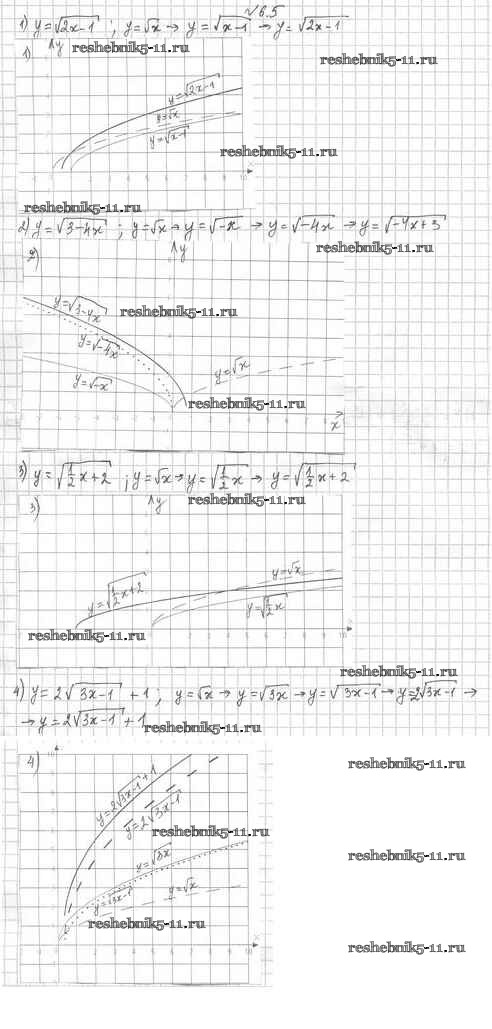 №6.5
1) y=√(2x-1) ; y=√x → y=√(x-1) → y=√(2x-1)
reshebnik5-11.ru
reshebnik5-11.ru
1)
y
y=√(2x-1)
y=√x
y=√(x-1)
reshebnik5-11.ru
x
reshebnik5-11.ru
2) y=√(3-4x) ; y=√x → y=√(-x) → y=√(-4x) → y=√(-4x+3)
reshebnik5-11.ru
2)
y
y=√(3-4x)
reshebnik5-11.ru
y=√(-4x)
y=√x
y=√(-x)
reshebnik5-11.ru
x
3) y=√(1/2x+2) ; y=√x → y=√(1/2x) → y=√(1/2x+2)
reshebnik5-11.ru
3)
y
y=√x
y=√(1/2x+2)
y=√(1/2x)
reshebnik5-11.ru
reshebnik5-11.ru
4) y=2√(3x-1)+1 ; y=√x → y=√(3x) → y=√(3x-1) → y=2√(3x-1) →
→ y=2√(3x-1)+1
reshebnik5-11.ru
4)
reshebnik5-11.ru
y=2√(3x-1)+1
y=2√(3x-1)
reshebnik5-11.ru
y=√(3x)
reshebnik5-11.ru
y=√(3x-1)
y=√x
reshebnik5-11.ru
reshebnik5-11.ru